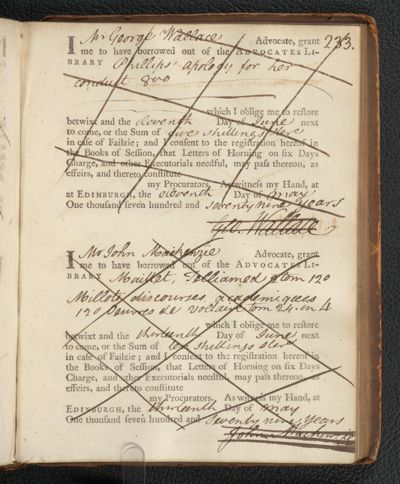 233.
I Mr George Wallace Advocate, grant
me to have borrowed out of the ADVOCATES LI-
BRARY Phillips' apology for her
conduct 8vo
which I oblige me to reſtore
betwixt and the eleventh Day of June next
to come, or the Sum of five shillings Sters
in caſe of Failzie; and I conſent to the regiſtration hereof in
the Books of Seſſion, that Letters of Horning on ſix Days
Charge, and other Executorials needful, may paſs thereon, as
effeirs, and thereto conſtitute
my Procurators. As witneſs my Hand, at
at EDINBURGH, the eleventh Day of May
One thouſand ſeven hundred and seventy nine years
Geo. Wallace
I Mr John Mackenzie Advocate, grant
me to have borrowed out of the ADVOCATES LI-
BRARY Maillet, Telliamed 2 tom 12o
Millot, discourses, academiques
12o Oeuvres de Voltaire tom 24. en 4
which I oblige me to reſtore
betwixt and the thirteenth Day of June next
to come, or the Sum of ten shillings Sters
in caſe of Failzie; and I conſent to the regiſtration hereof in
the Books of Seſſion, that Letters of Horning on ſix Days
Charge, and other Executorials needful, may paſs thereon, as
effeirs, and thereto conſtitute
my Procurators. As witneſs my Hand, at
EDINBURGH, the thirteenth Day of May
One thouſand ſeven hundred and Seventy nine years
John Mackenzie